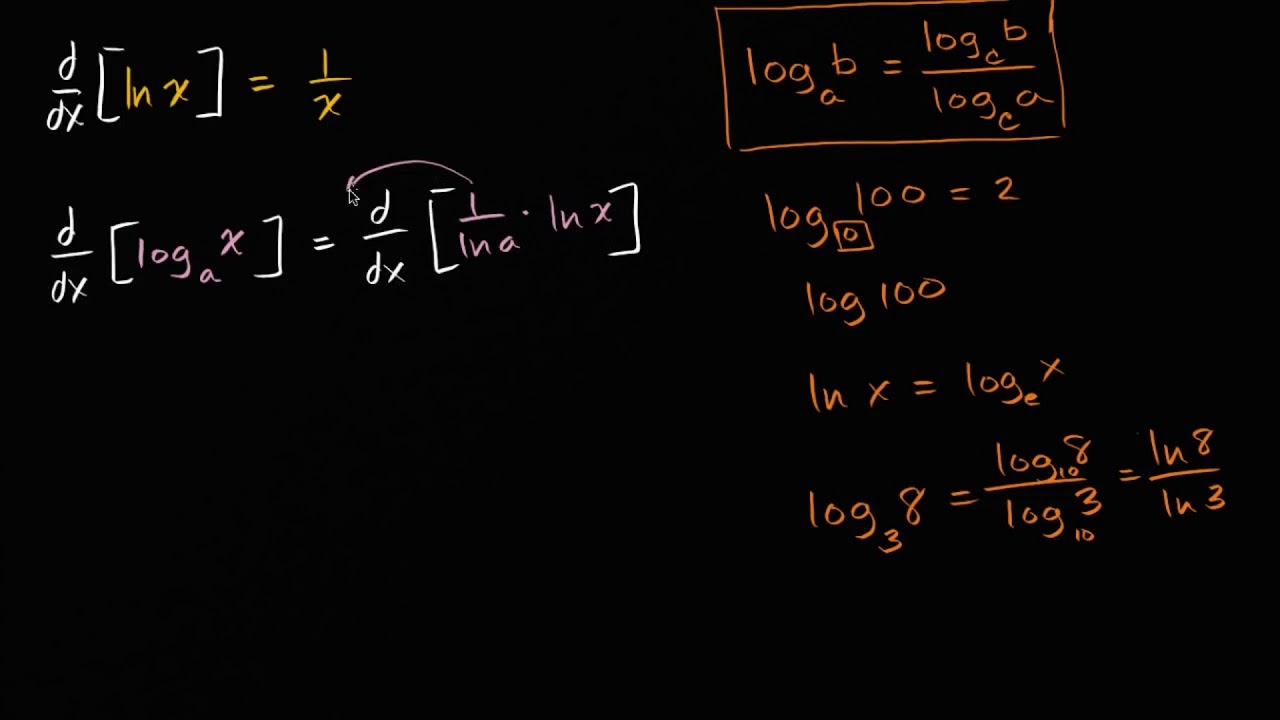 d/dx [ln x] = 1/x
d/dx [logₐ x] = d/dx [1/ln a · ln x]
logₐ b = log_c b / log_c a
log₁₀ 100 = 2
log 100
ln x = logₑ x
log₃ 8 = log₁₀ 8 / log₁₀ 3 = ln 8 / ln 3